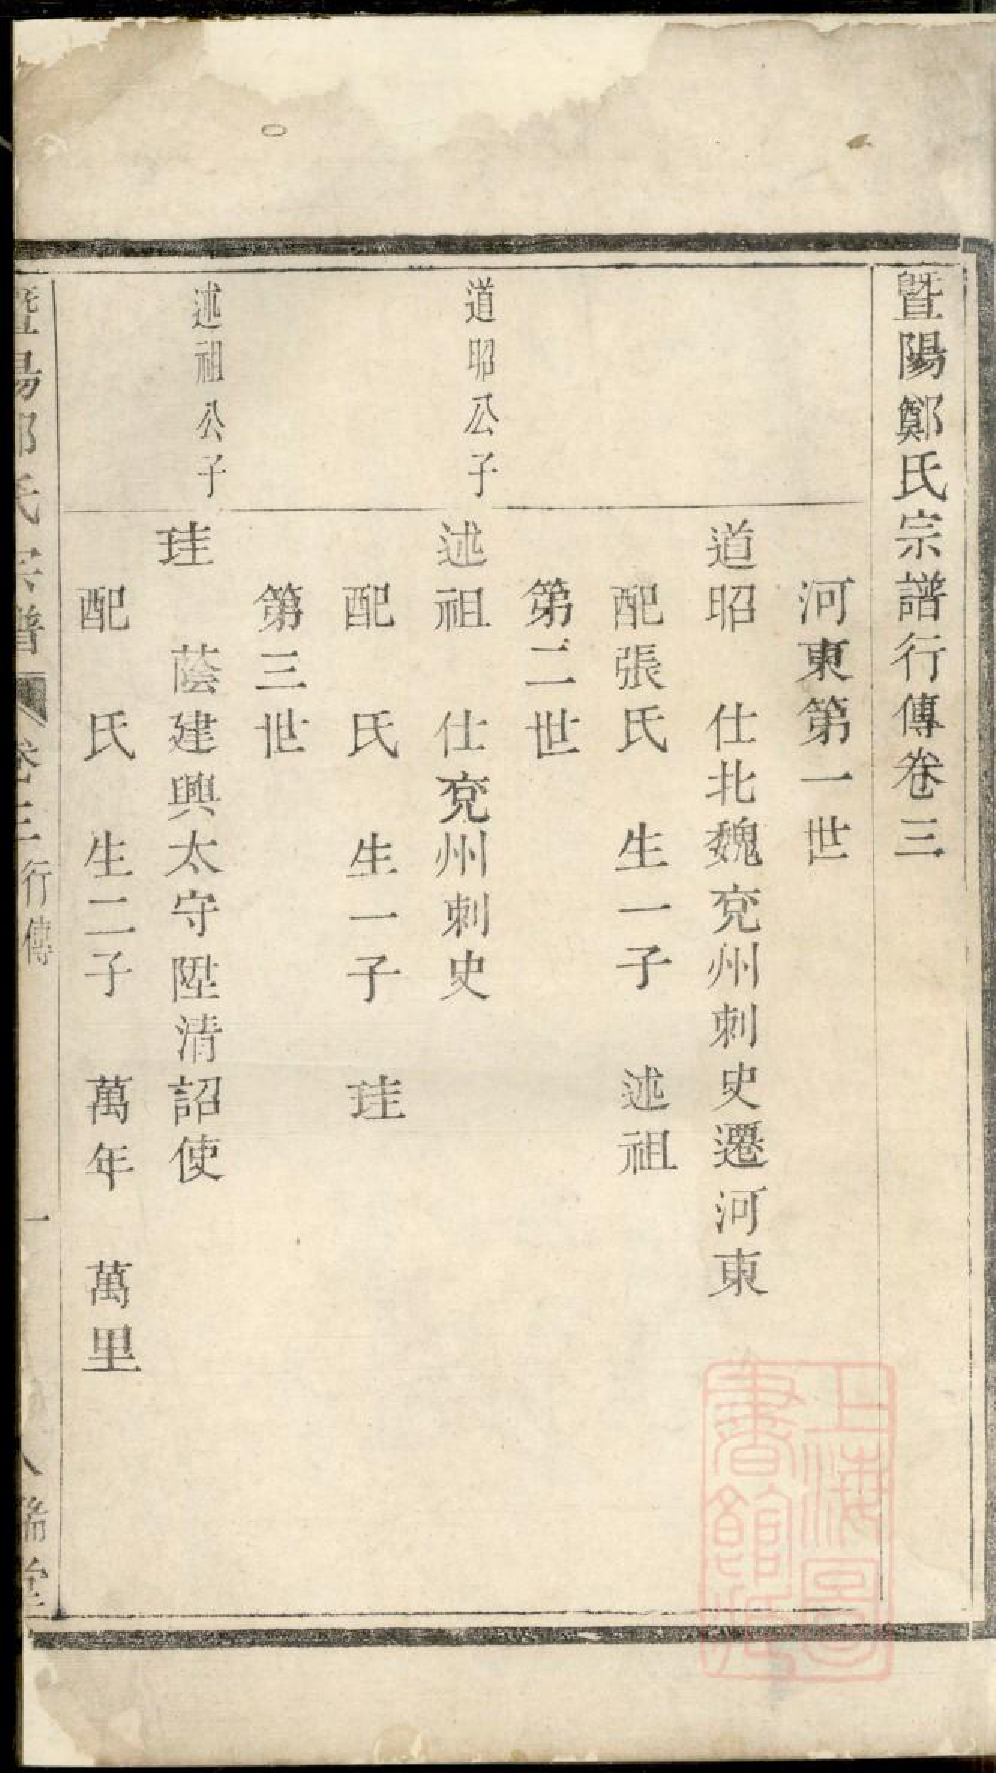 暨陽鄭氏宗譜行傳卷三
河東第一世
道昭 仕北魏兗州刺史遷河東
配張氏 生一子 述祖
第二世
道昭公子
述祖 仕兗州刺史
配 氏 生一子 珪
第三世
述祖公子
珪 蔭建興太守陞清詔使
配 氏 生二子 萬年 萬里
暨陽鄭氏宗譜 卷三 行傳 一 人瑞堂
上海圖書館藏